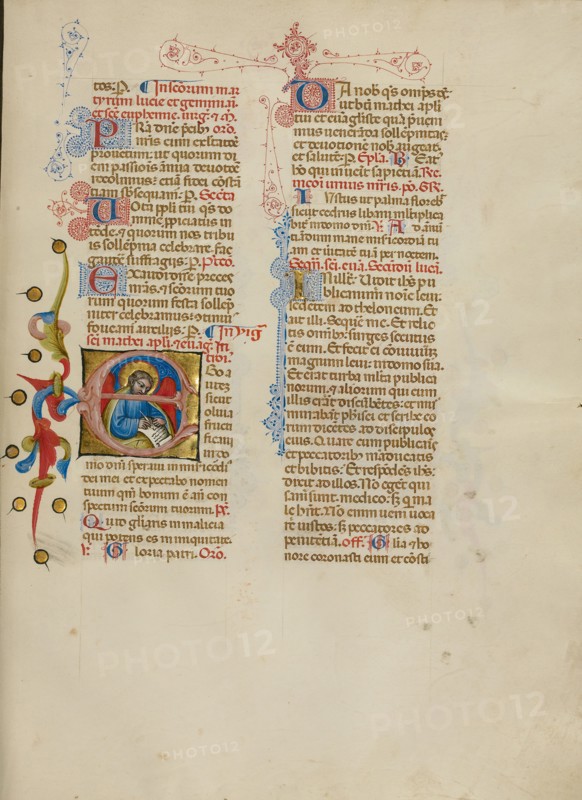 tes: P. In scorum mar
tyrum lucie et geminiani
et sce euphemie. uirg. & m.
PRa dne pcib oro.
nris cum exultatoe
prouectum: ut quorum di
em passiois annua deuotoe
recolimus: etiam fidei costa
tiam subsequam. P. Secta
UOta ppli tui qs do
mine ppiciatus in
tede: & quorum nos tribu
is sollepnia celebrare. fac
gaude suffragiis. P. Pco.
EXaudi dne preces
nras. & scorum tuo
rum quorum festa sollep
niter celebramus: otinuis
foueamur auxiliis. P. In uig
sci mathei apli & euang. In
troit.
Ego a
utez
sicut
oliua
fructi
ficaui
in do
mo dni speraui in mia dei
mei et expectabo nomen
tuum qm bonum e an con
spectum scorum tuorum. Ps.
Quid gliaris in malicia
qui potens es in iniquitate.
V. Gloria patri. Oro.
DA nob qs omips de
ut bti mathei apli
tui et euangliste qua pueni
mus ueneranda sollepnitas
et deuotione nob augeat
et salute. P. Epla. B. Eat
ho qui inueit sapietiam. Re
in coi unius mris. po. GR.
IUstus ut palma floreb
sicut cedrus libani multiplica
bit in domo dni. V. Ad anu
tiandum mane miscordia tu
am et uitate tua per noctem.
Sequ. sci. eua. Secundu luca.
IN ille. Vidit ihs pu
blicanum noie leui
sedentem ad theloneum. Et
ait illi. Sequere me. Et relic
tis omnib: surges secutus
e eum. Et fecit ei conuiuium
magnum leui: in domo sua.
Et erat turba multa publica
norum. & aliorum qui cum
illis erat discubetes: et mur
murabat pharisei et scribe eo
rum dicetes ad discipulos
eius. Quare cum publicanis
et peccatorib manducatis
et bibitis: Et respodes ihs:
dixit ad illos. No eget qui
sani sunt. medico: s q ma
le hnt. No enim ueni uoca
re iustos: s peccatores ad
penitetia. Off. Glia & ho
nore coronasti eum et costi
PHOTO12